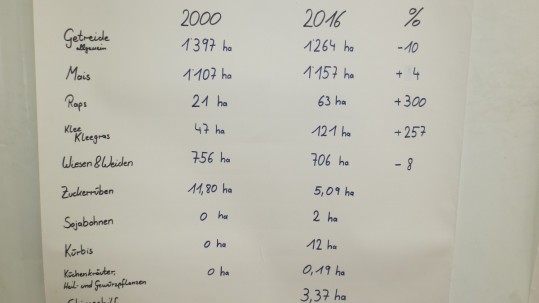 2000 2016 %
Getreide allgemein 1'397 ha 1'264 ha -10
Mais 1'107 ha 1'157 ha + 4
Raps 21 ha 63 ha +300
Klee, Kleegras 47 ha 121 ha +257
Wiesen & Weiden 756 ha 706 ha - 8
Zuckerrüben 11,80 ha 5,09 ha
Sojabohnen 0 ha 2 ha
Kürbis 0 ha 12 ha
Küchenkräuter, 0 ha 0,19 ha
Heil- und Gewürzpflanzen
3,37 ha